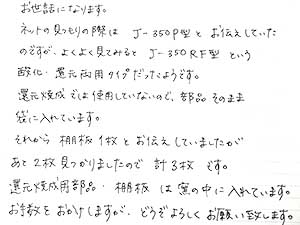 お世話になります。
ネットの見つもりの際は J-350P型 と お伝えしていた
のですが、よくよく見てみると J-350RF型 という
酸化・還元両用タイプだったようです。
還元焼成では使用していないので、部品そのまま
袋に入れています。
それから 棚板1枚とお伝えしていましたが
あと2枚見つかりましたので 計3枚です。
還元焼成用部品・棚板 は窯の中に入れています。
お手数をおかけしますが、どうぞよろしくお願い致します。